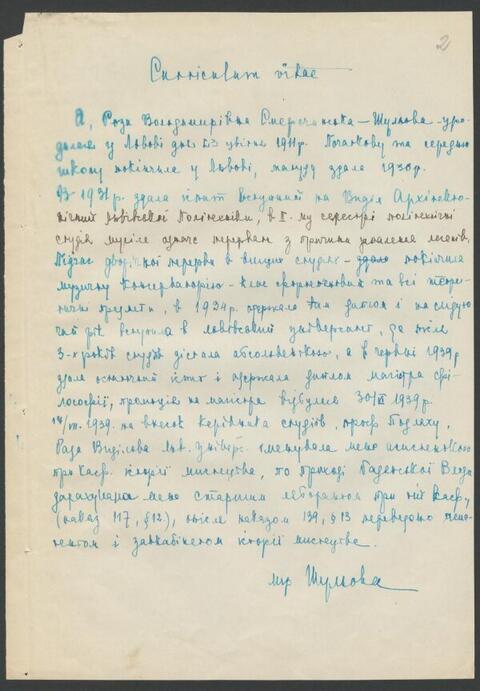 2
Curriculum vitae
Я, Роза Володимирівна Смеречинська-Шульова уро-
дилась у Львові дня 23 цвітня 1911 р. Початкову та середню
школу покінчила у Львові, матуру здала 1930 р.
В 1931 р. здала іспит вступний на Виділ Архітекто-
нічний Львівської Політехніки, в I. му семестрі політехнічні
студії мусіла одначе перервати з причини запалення легенів.
Підчас дворічної перерви в вищих студіях - здала покінчила
музичну Консерваторію - клас фортепіяновий та всі теоре-
тичні предмети, в 1934 р. одержала там диплом і на слідую-
чий рік вступила в львівський університет, де після
3-х років студій дістала абсольвенторію, а в червні 1939 р
здала останній іспит і одержала диплом магістра фі-
лософії, промоція на магістра відбулась 30/VI 1939 р.
14/VII. 1939. на внесок керівника студій, проф. Подляху,
Рада Виділова Льв. Універс. іменувала мене асистенткою
при кафедрі історії мистецтва, по приході Радянської Влади
зарахувана мене старшим лаборантом при тій кафедрі
(наказ 117, § 12), опісля наказом 139, § 13 переведено
і завкабінетом історії мистецтва.
мр Шульова